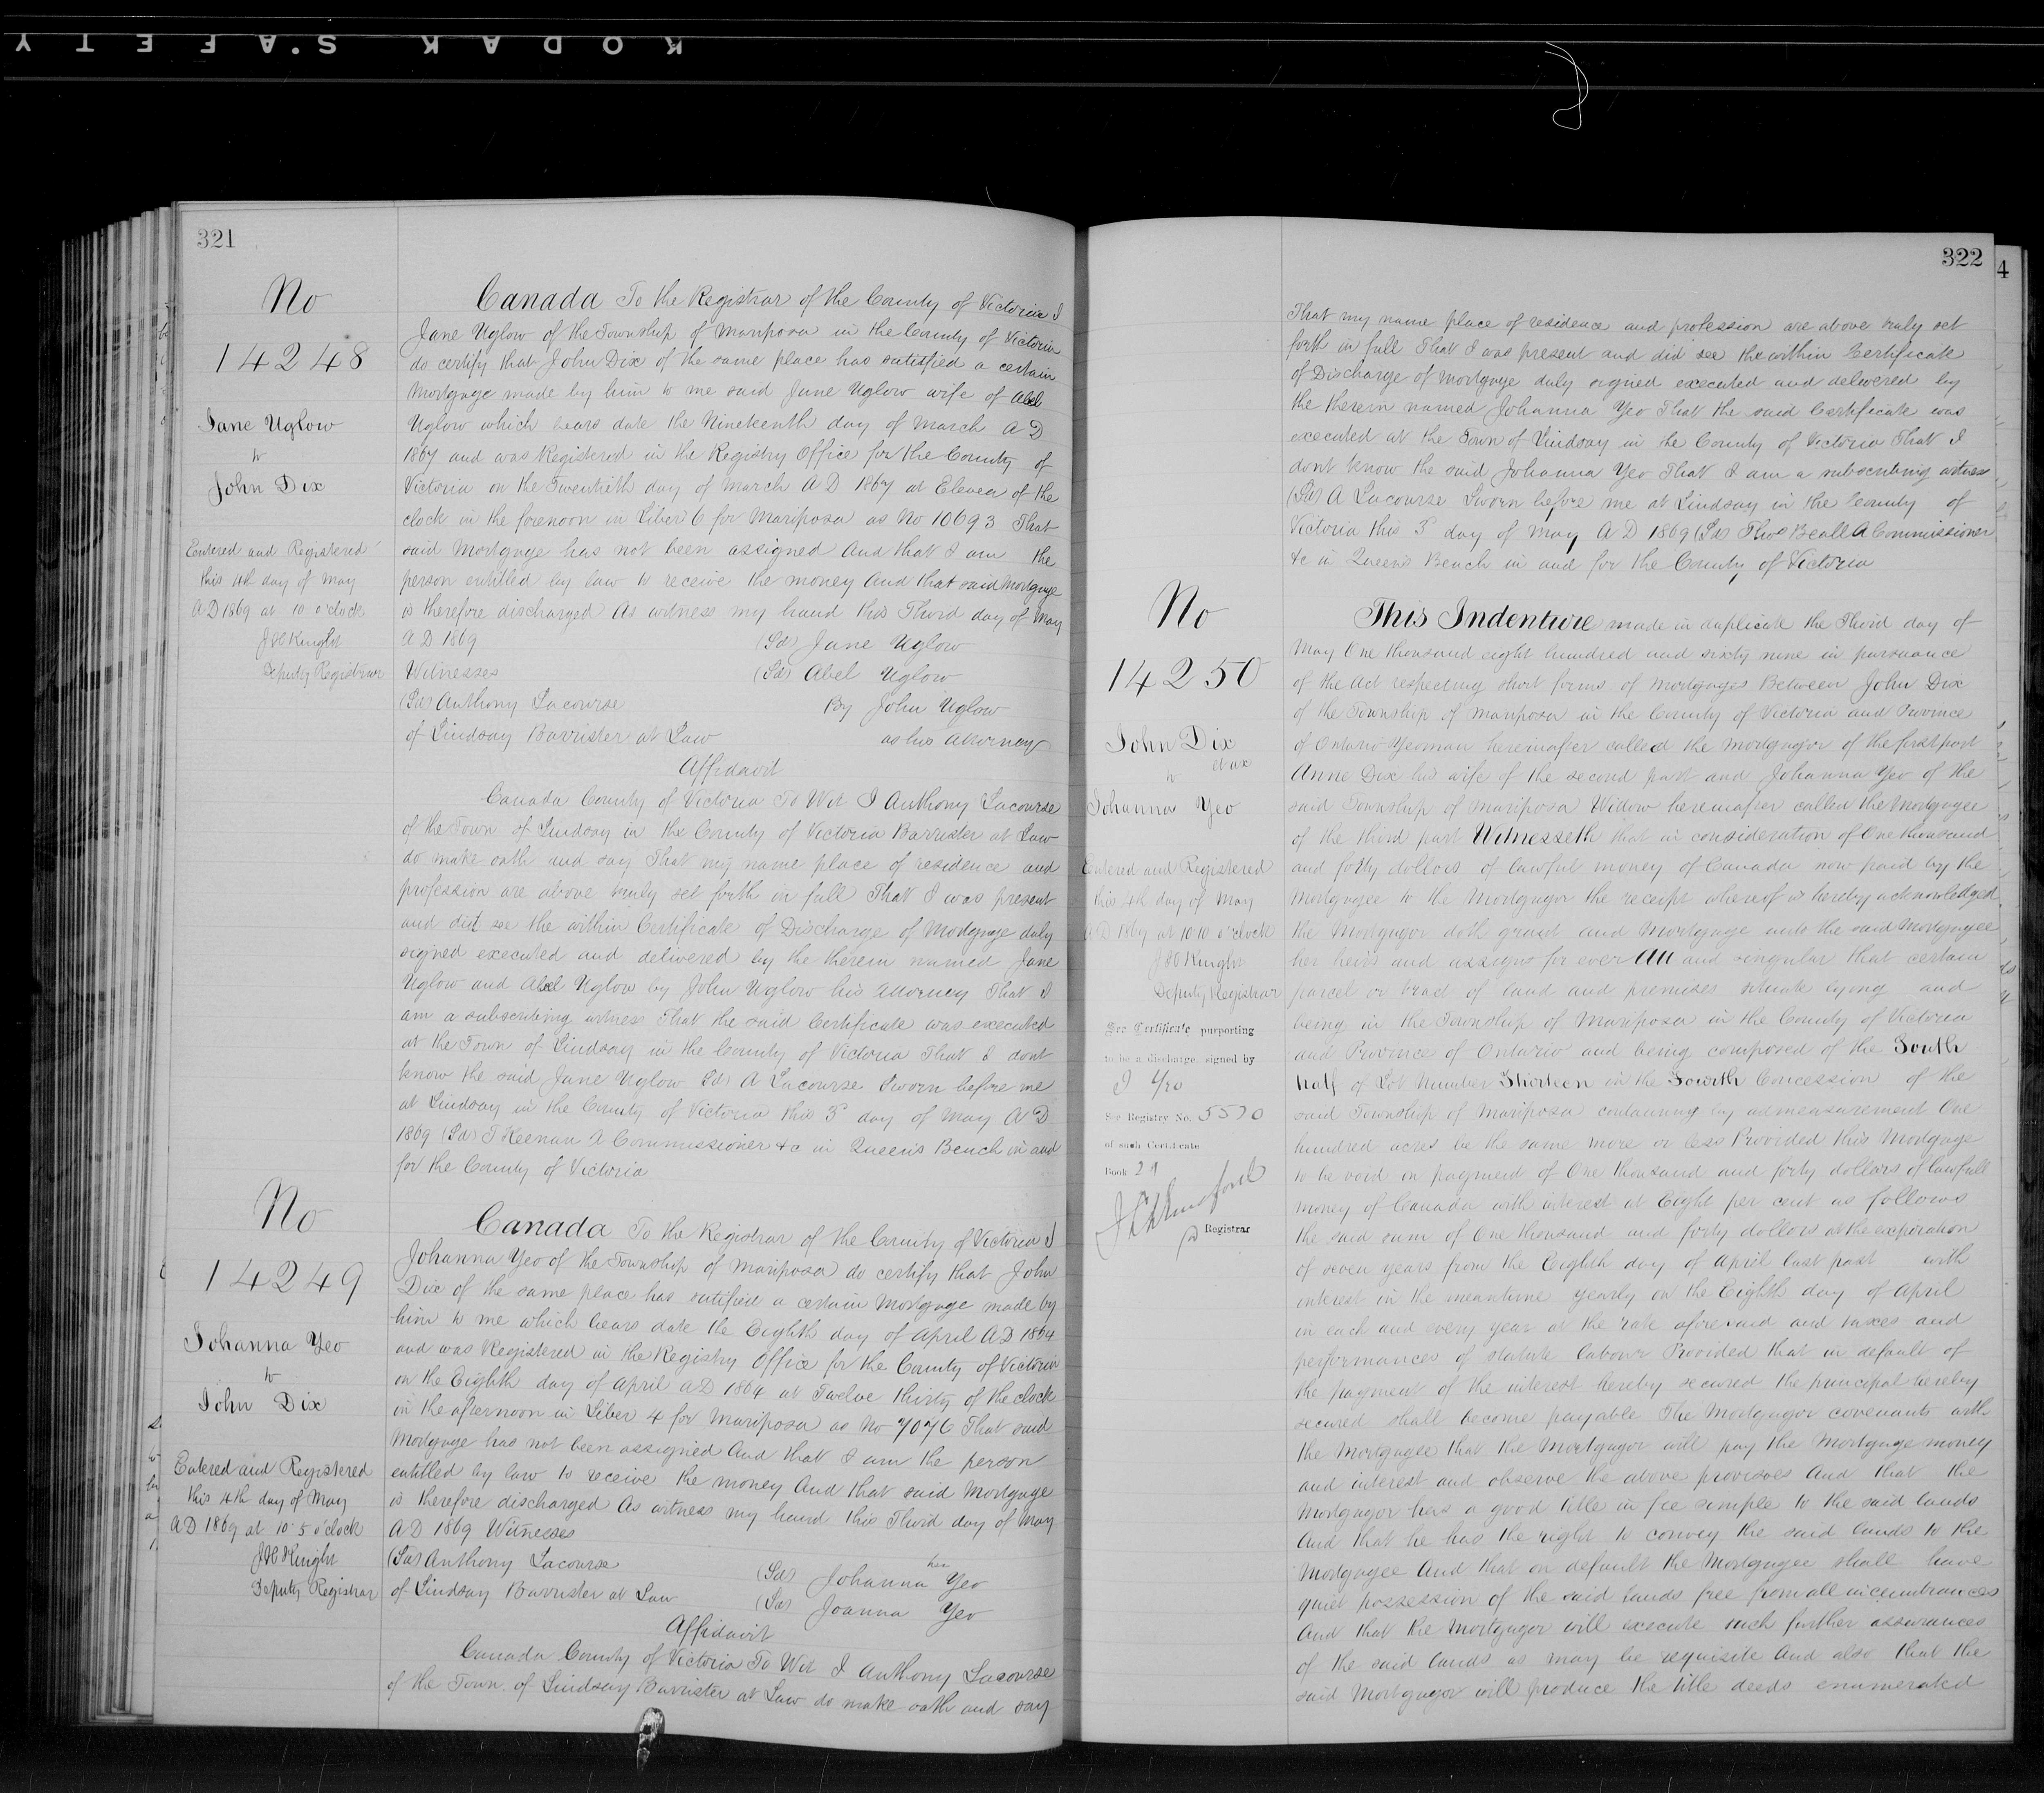 KODAK SAFETY
321
No
14248
Jane Uglow
to
John Dix
Entered and Registered
this 4th day of May
AD 1869 at 10 o'clock
Knight
Deputy Registrar
Canada To the Registrar of the County of Victoria I
Jane Uglow of the Township of Mariposa in the County of Victoria
do certify that John Dix of the same place has satisfied a certain
Mortgage made by him to me said Jane Uglow wife of Abel
Uglow which bears date the Nineteenth day of March A D
1867 and was Registered in the Registry Office for the County of
Victoria on the Twentieth day of March A D 1867 at Eleven of the
clock in the forenoon in Liber 6 for Mariposa as No 10693 That
said Mortgage has not been assigned And that I am the
person entitled by law to receive the money And that said Mortgage
is therefore discharged As witness my hand this Third day of May
A D 1869 (Sd) Jane Uglow
Witnesses (Sd) Abel Uglow
(Sd) Anthony Lacourse By John Uglow
of Lindsay Barrister at Law as his Attorney
Affidavit
Canada County of Victoria To Wit I Anthony Lacourse
of the Town of Lindsay in the County of Victoria Barrister at Law
do make oath and say That my name place of residence and
profession are above truly set forth in full That I was present
and did see the within Certificate of Discharge of Mortgage duly
signed executed and delivered by the therein named Jane
Uglow and Abel Uglow by John Uglow his Attorney That I
am a subscribing witness That the said Certificate was executed
at the Town of Lindsay in the County of Victoria That I dont
know the said Jane Uglow (Sd) A Lacourse Sworn before me
at Lindsay in the County of Victoria this 3d day of May A D
1869 (Sd) T Keenan A Commissioner &c in Queens Bench in and
for the County of Victoria
No
14249
Johanna Yeo
to
John Dix
Entered and Registered
this 4th day of May
AD 1869 at 10.5 o'clock
Knight
Deputy Registrar
Canada To the Registrar of the County of Victoria I
Johanna Yeo of the Township of Mariposa do certify that John
Dix of the same place has satisfied a certain Mortgage made by
him to me which bears date the Eighth day of April AD 1864
and was Registered in the Registry Office for the County of Victoria
on the Eighth day of April AD 1864 at Twelve thirty of the clock
in the afternoon in Liber 4 for Mariposa as No 7076 That said
Mortgage has not been assigned And that I am the person
entitled by law to receive the money And that said Mortgage
is therefore discharged As witness my hand this Third day of May
A D 1869 Witnesses
(Sd) Anthony Lacourse her
(Sd) Johanna Yeo
of Lindsay Barrister at Law (Sd) Joanna Yeo
Affidavit
Canada County of Victoria To Wit I Anthony Lacourse
of the Town of Lindsay Barrister at Law do make oath and say
322
4
That my name place of residence and profession are above truly set
forth in full That I was present and did see the within Certificate
of Discharge of Mortgage duly signed executed and delivered by
the therein named Johanna Yeo That the said Certificate was
executed at the Town of Lindsay in the County of Victoria That I
dont know the said Johanna Yeo That I am a subscribing witness
(Sd) A Lacourse Sworn before me at Lindsay in the County of
Victoria this 3d day of May A D 1869 (Sd) Thos Beall A Commissioner
&c in Queens Bench in and for the County of Victoria
No
14250
John Dix
et ux
to
Johanna Yeo
Entered and Registered
this 4th day of May
A D 1869 at 10.10 o'clock
Knight
Deputy Registrar
See Certificate purporting
to be a discharge, signed by
J Yeo
See Registry No. 5570
of such Certificate
Book 21
Registrar
This Indenture made in duplicate the Third day of
May One thousand eight hundred and sixty nine in pursuance
of the Act respecting short forms of Mortgages Between John Dix
of the Township of Mariposa in the County of Victoria and Province
of Ontario Yeoman hereinafter called the Mortgagor of the first part
Anne Dix his wife of the second part and Johanna Yeo of the
said Township of Mariposa Widow hereinafter called the Mortgagee
of the third part Witnesseth that in consideration of One thousand
and forty dollars of lawful money of Canada now paid by the
Mortgagee to the Mortgagor the receipt whereof is hereby acknowledged
the Mortgagor doth grant and Mortgage unto the said Mortgagee
her heirs and assigns for ever All and singular that certain
parcel or tract of land and premises situate lying and
being in the Township of Mariposa in the County of Victoria
and Province of Ontario and being composed of the South
half of Lot Number Thirteen in the Fourth Concession of the
said Township of Mariposa containing by admeasurement One
hundred acres be the same more or less Provided this Mortgage
to be void on payment of One thousand and forty dollars of lawfull
money of Canada with interest at Eight per cent as follows
the said sum of One thousand and forty dollars at the expiration
of seven years from the Eighth day of April last past with
interest in the meantime yearly on the Eighth day of April
in each and every year at the rate aforesaid and taxes and
performances of statute labour Provided that in default of
the payment of the interest hereby secured the principal hereby
secured shall become payable The Mortgagor covenants with
the Mortgagee that the Mortgagor will pay the Mortgage money
and interest and observe the above provisoes And that the
Mortgagor has a good title in fee simple to the said lands
And that he has the right to convey the said lands to the
Mortgagee And that on default the Mortgagee shall have
quiet possession of the said lands free from all incumbrances
And that the Mortgagor will execute such further assurances
of the said lands as may be requisite And also that the
said Mortgagor will produce the title deeds enumerated